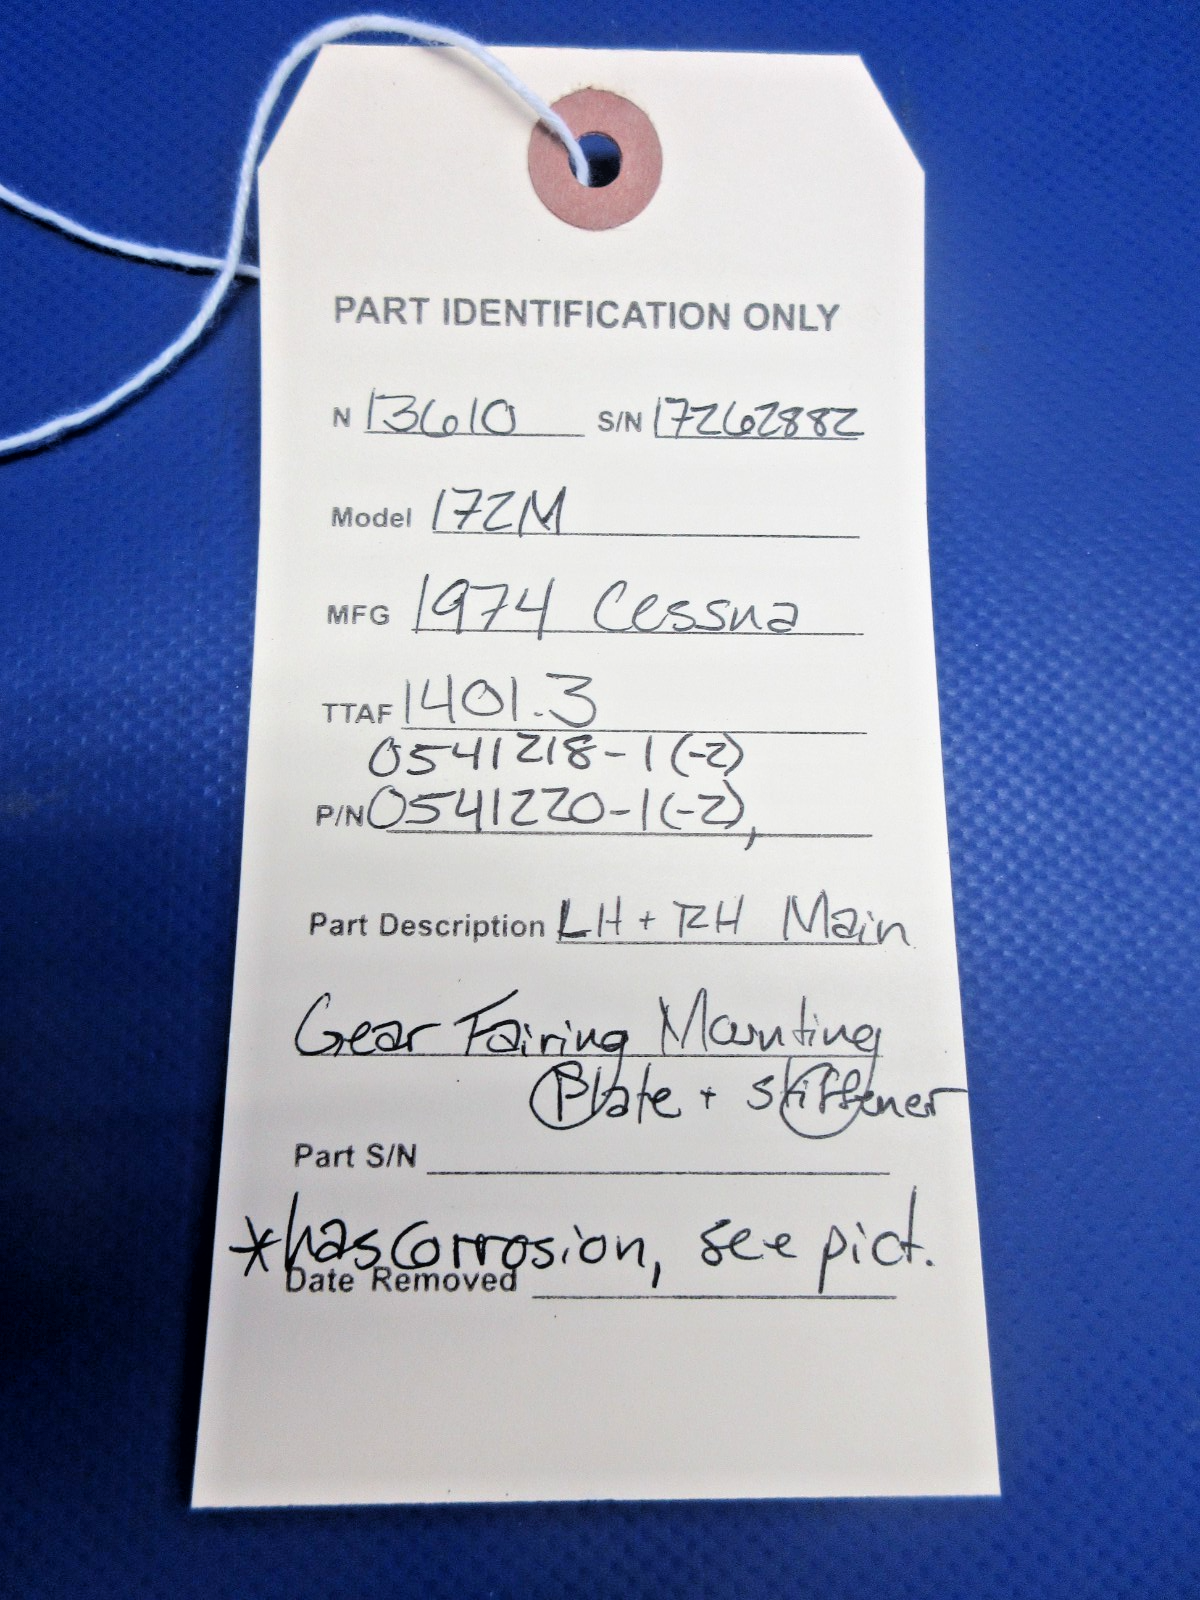 PART IDENTIFICATION ONLY
N 13610 S/N 17262882
Model 172M
MFG 1974 Cessna
TTAF 1401.3
0541218-1(-2)
P/N 0541220-1(-2),
Part Description LH + RH Main
Gear Fairing Mounting
Plate + Stiffener
Part S/N
*has Corrosion, see pict.
Date Removed